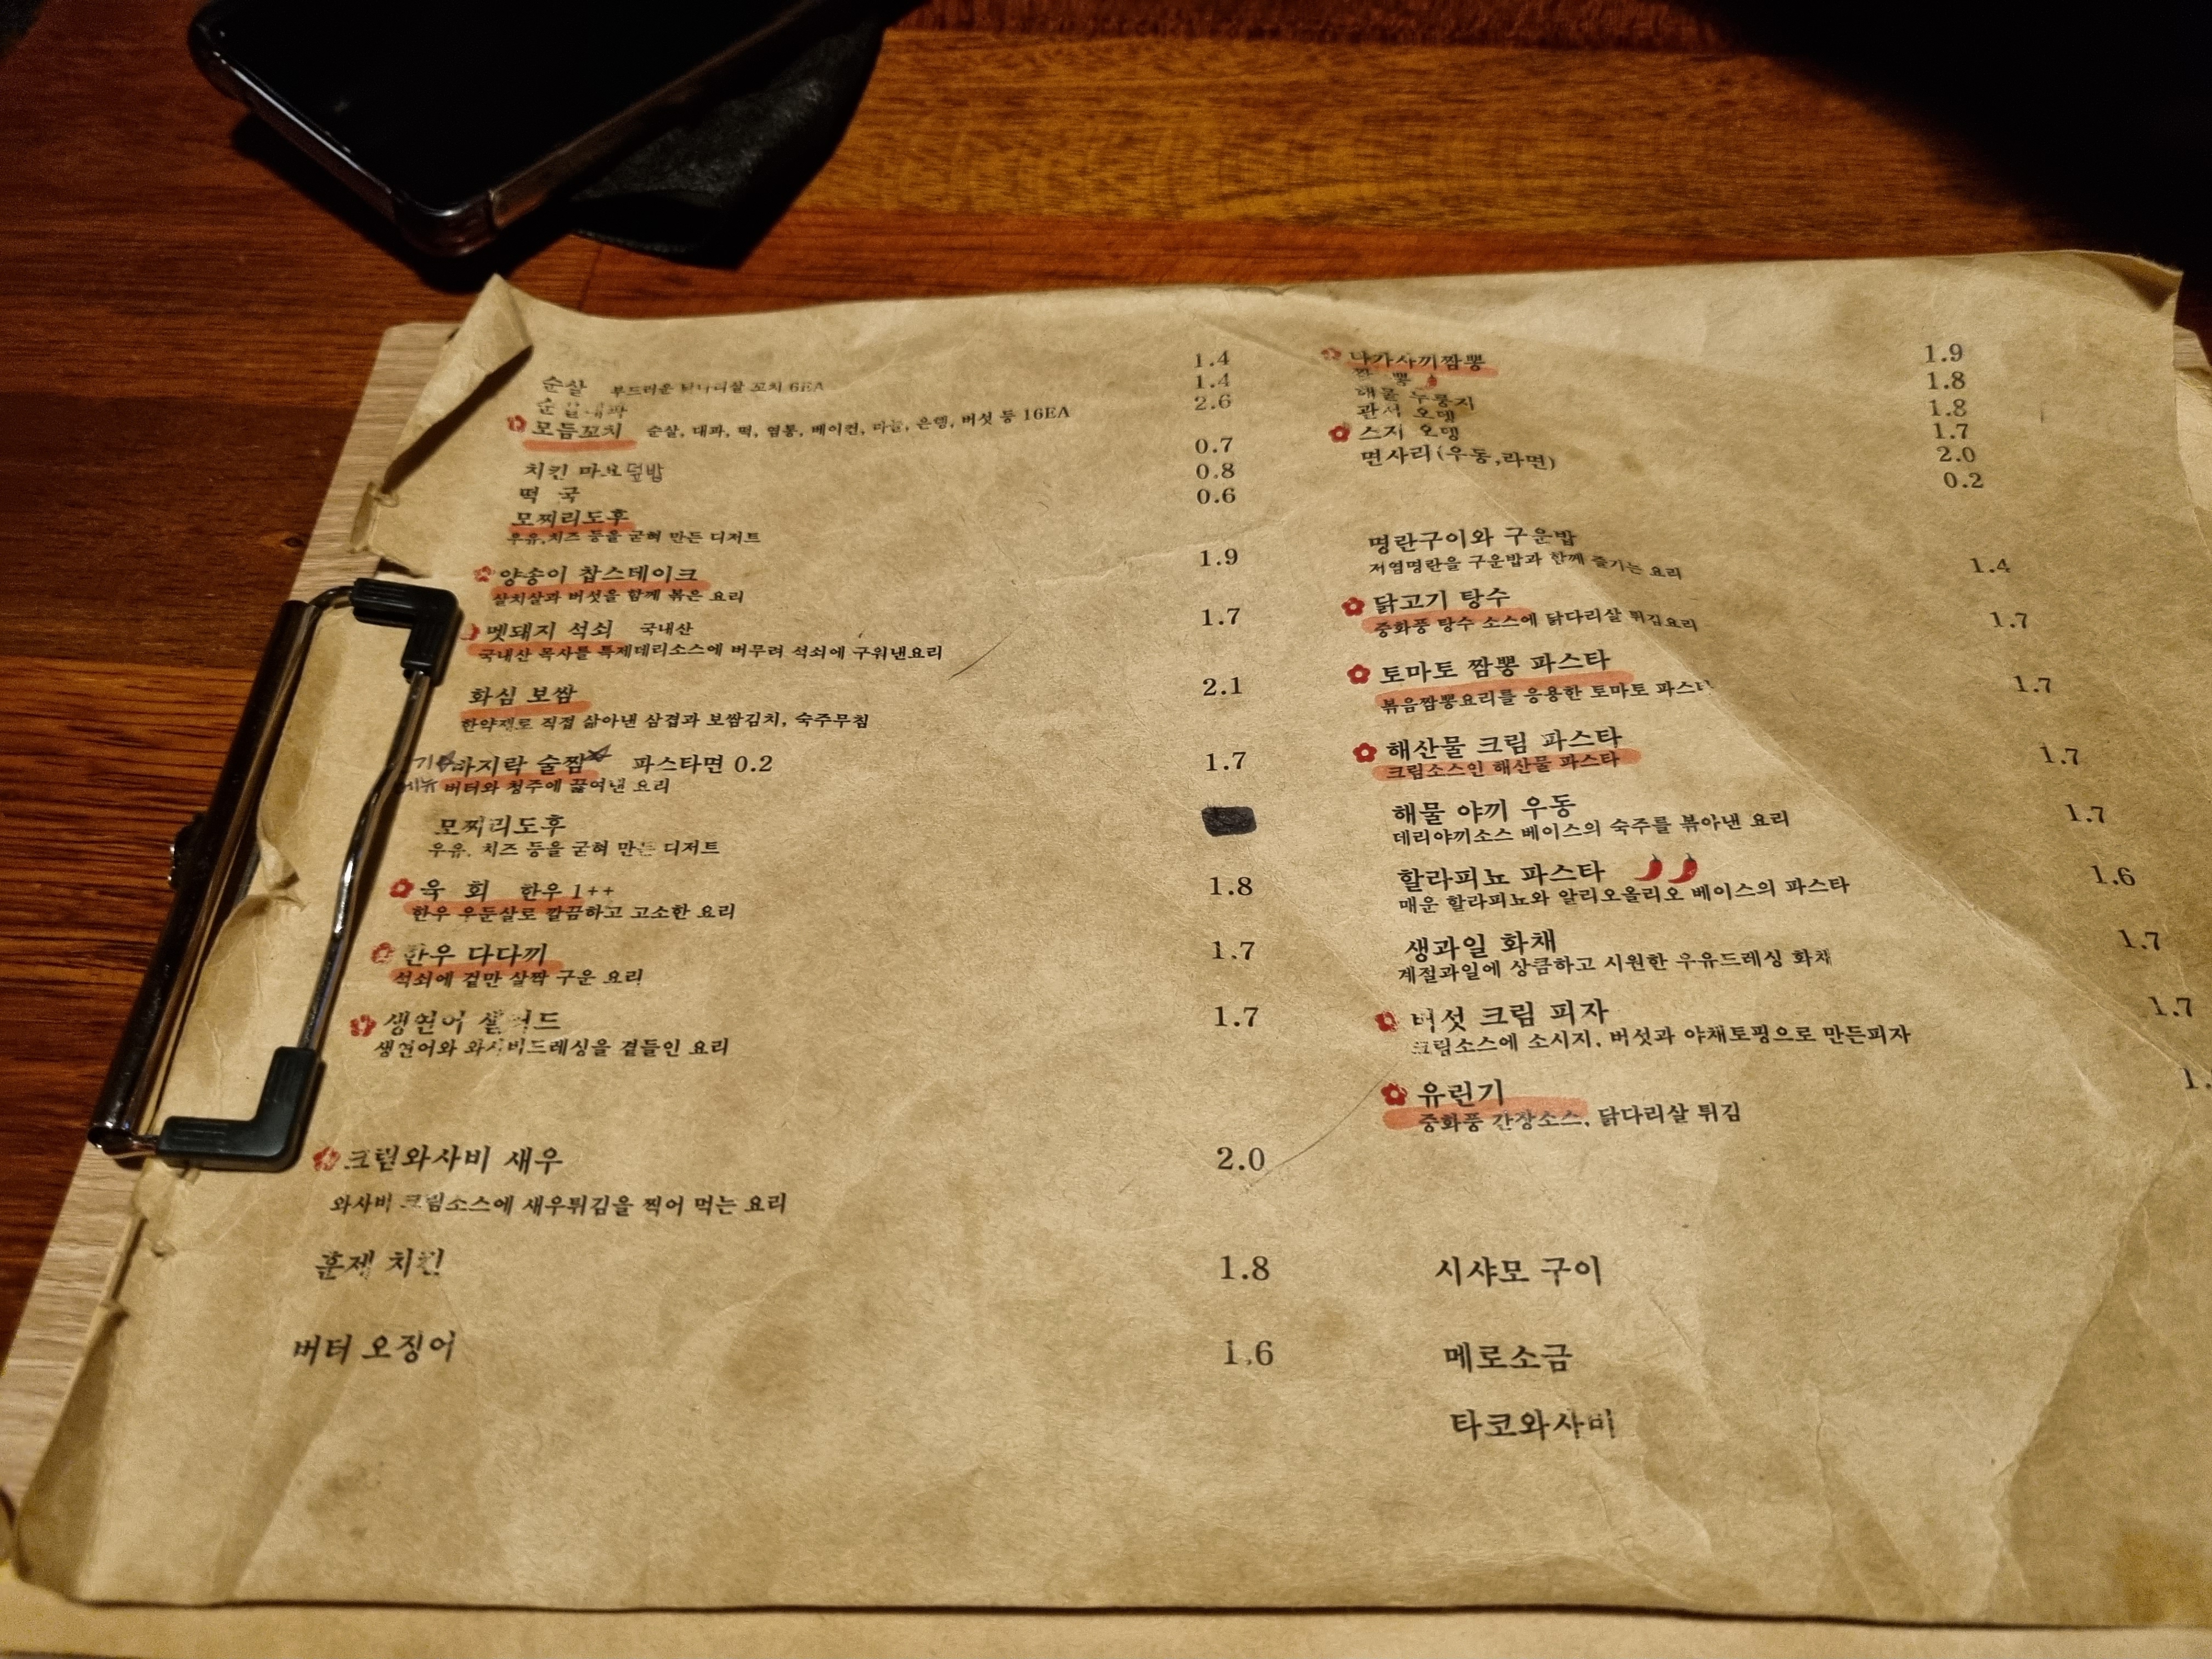 순살 부드러운 닭다리살 꼬치 6EA 1.4
순살대파 1.4
모듬꼬치 순살, 대파, 떡, 염통, 베이컨, 마늘, 은행, 버섯 등 16EA 2.6
치킨 마요덮밥 0.7
떡 국 0.8
모찌리도후 0.6
우유,치즈 등을 굳혀 만든 디저트
양송이 찹스테이크 1.9
살치살과 버섯을 함께 볶은 요리
멧돼지 석쇠 국내산 1.7
국내산 목사를 특제데리소스에 버무려 석쇠에 구워낸요리
화심 보쌈 2.1
한약재로 직접 삶아낸 삼겹과 보쌈김치, 숙주무침
바지락 술찜 파스타면 0.2 1.7
버터와 청주에 끓여낸 요리
모찌리도후
우유, 치즈 등을 굳혀 만든 디저트
육 회 한우 1++ 1.8
한우 우둔살로 깔끔하고 고소한 요리
한우 다다끼 1.7
석쇠에 겉만 살짝 구운 요리
생연어 샐러드 1.7
생연어와 와사비드레싱을 곁들인 요리
크림와사비 새우 2.0
와사비 크림소스에 새우튀김을 찍어 먹는 요리
훈제 치킨 1.8
버터 오징어 1.6
나가사끼짬뽕 1.9
짬 뽕 1.8
해물 누룽지 1.8
관서 오뎅 1.7
스지 오뎅 2.0
면사리(우동,라면) 0.2
명란구이와 구운밥 1.4
저염명란을 구운밥과 함께 즐기는 요리
닭고기 탕수 1.7
중화풍 탕수 소스에 닭다리살 튀김요리
토마토 짬뽕 파스타 1.7
볶음짬뽕요리를 응용한 토마토 파스타
해산물 크림 파스타 1.7
크림소스인 해산물 파스타
해물 야끼 우동 1.7
데리야끼소스 베이스의 숙주를 볶아낸 요리
할라피뇨 파스타 1.6
매운 할라피뇨와 알리오올리오 베이스의 파스타
생과일 화채 1.7
계절과일에 상큼하고 시원한 우유드레싱 화채
버섯 크림 피자 1.7
크림소스에 소시지, 버섯과 야채토핑으로 만든피자
유린기
중화풍 간장소스, 닭다리살 튀김
시샤모 구이
메로소금
타코와사비